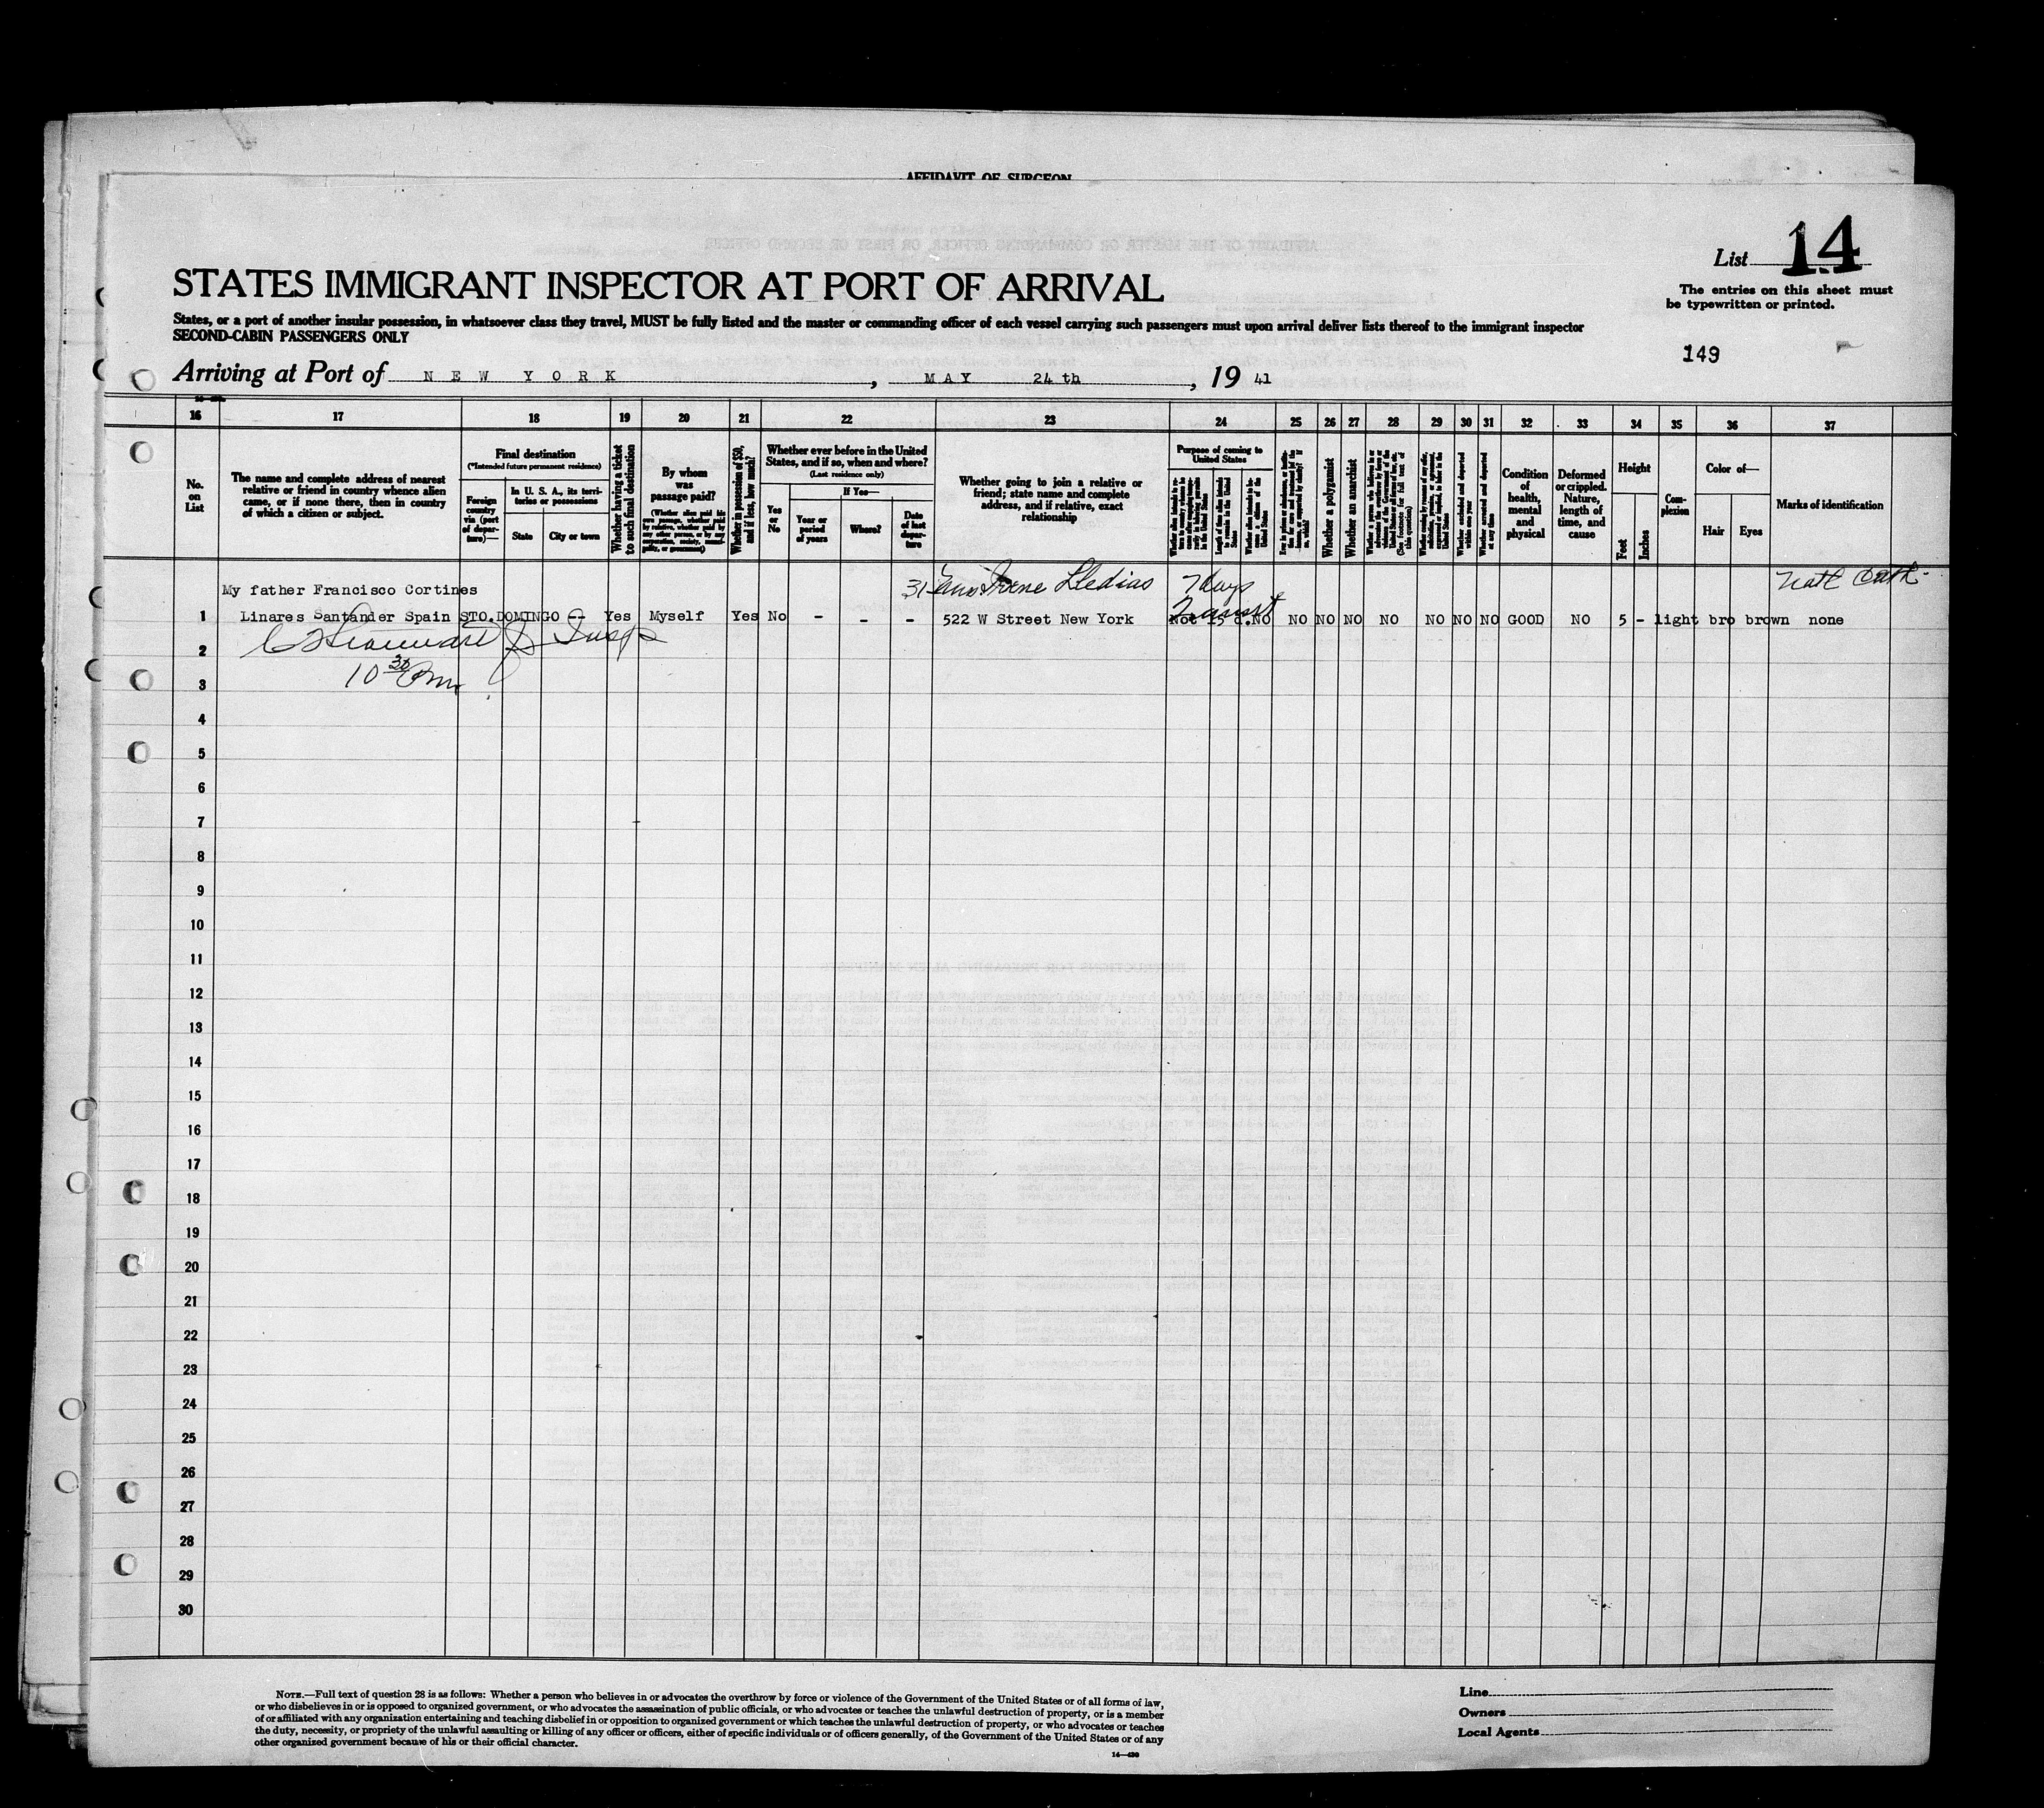 AFFIDAVIT OF SURGEON
List 14
The entries on this sheet must
be typewritten or printed.
STATES IMMIGRANT INSPECTOR AT PORT OF ARRIVAL
States, or a port of another insular possession, in whatsoever class they travel, MUST be fully listed and the master or commanding officer of each vessel carrying such passengers must upon arrival deliver lists thereof to the immigrant inspector
SECOND-CABIN PASSENGERS ONLY
149
Arriving at Port of NEW YORK, MAY 24th, 19 41
16 17 18 19 20 21 22 23 24 25 26 27 28 29 30 31 32 33 34 35 36 37
No. on List
The name and complete address of nearest
relative or friend in country whence alien
came, or if none there, then in country
of which a citizen or subject.
Final destination
(*Intended future permanent residence)
Foreign country via (port of departure)—
In U. S. A., its territories or possessions
State
City or town
Whether having a ticket to such final destination
By whom was passage paid?
(Whether alien paid his own passage, whether paid by relative, whether paid by any other person, or by any corporation, society, municipality, or government)
Whether in possession of $50, and if less, how much?
Whether ever before in the United
States, and if so, when and where?
(Last residence only)
Yes or No
If Yes—
Year or period of years
Where?
Date of last departure
Whether going to join a relative or
friend; state name and complete
address, and if relative, exact
relationship
Purpose of coming to United States
Whether a polygamist
Whether an anarchist
Condition of health, mental and physical
Deformed or crippled. Nature, length of time, and cause
Height
Feet
Inches
Complexion
Color of—
Hair
Eyes
Marks of identification
My father Francisco Cortines 31 Irene Lledias 7 days Natl Cath
1 Linares Santander Spain STO.DOMINGO -- Yes Myself Yes No - - - 522 W Street New York Transit Not 15 d. NO NO NO NO NO NO NO NO GOOD NO 5 - light bro brown none
2
3 10 30
4
5
6
7
8
9
10
11
12
13
14
15
16
17
18
19
20
21
22
23
24
25
26
27
28
29
30
NOTE.—Full text of question 28 is as follows: Whether a person who believes in or advocates the overthrow by force or violence of the Government of the United States or of all forms of law,
or who disbelieves in or is opposed to organized government, or who advocates the assassination of public officials, or who advocates or teaches the unlawful destruction of property, or is a member
of or affiliated with any organization entertaining and teaching disbelief in or opposition to organized government or which teaches the unlawful destruction of property, or who advocates or teaches
the duty, necessity, or propriety of the unlawful assaulting or killing of any officer or officers, either of specific individuals or of officers generally, of the Government of the United States or of any
other organized government because of his or their official character.
14—430
Line
Owners
Local Agents